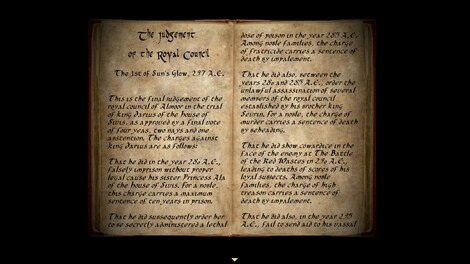 The Judgement
of the Royal Council
The 1st of Sun's Glow, 297 A.C.
This is the final judgement of the
royal council of Almoor in the trial
of king Darius of the house of
Sivis, as approved by a final vote
of four yeas, two nays and one
abstention. The charges against
king Darius are as follows:
That he did in the year 282 A.C.,
falsely imprison without proper
legal cause his sister Princess Ala
of the house of Sivis, for a noble,
this charge carries a maximum
sentence of ten years in prison.
That he did subsequently order her
to be secretly administered a lethal
dose of poison in the year 283 A.C.
Among noble families, the charge
of fratricide carries a sentence of
death by impalement.
That he did also, between the
years and 285 A.C., order the
unlawful assassination of several
members of the royal council
established by his brother king
for a noble, the charge of
murder carries a sentence of death
by beheading.
That he did show cowardice in the
face of the enemy at The Battle
of the Red Wastes in A.C.,
leading to deaths of scores of his
loyal subjects. Among noble
families, the charge of high
treason carries a sentence of
death by impalement.
That he did also, in the year A.C.
fail to send aid to his vassal